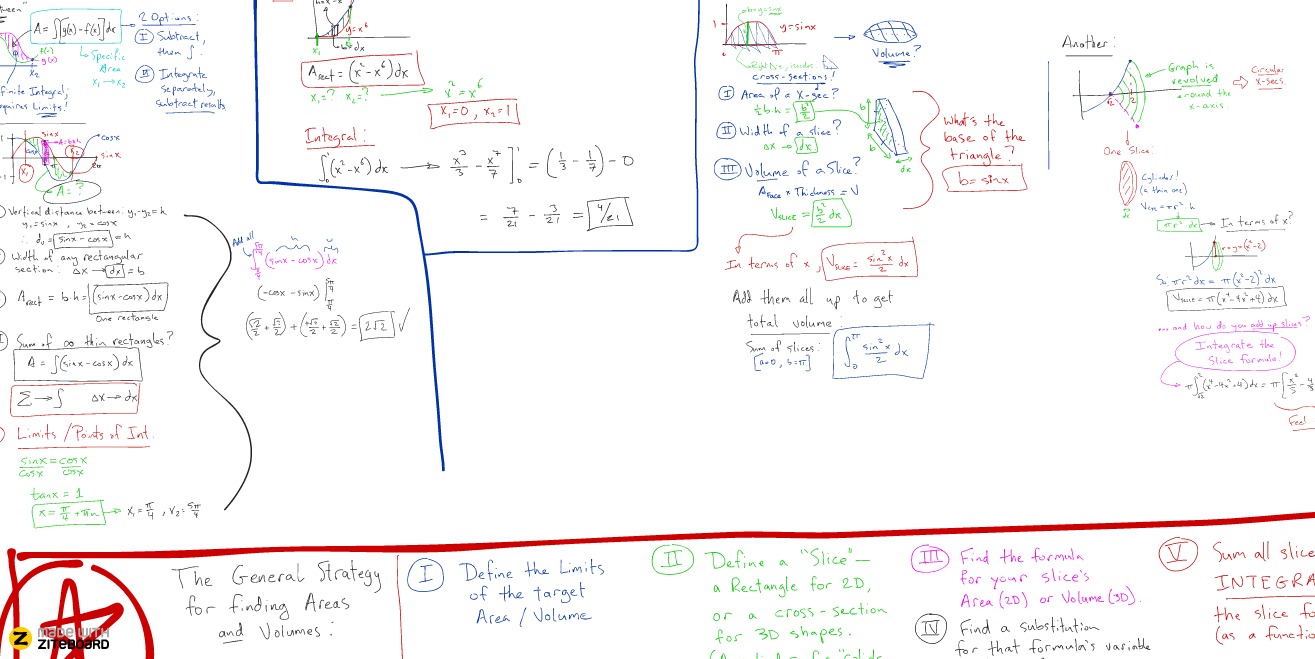 between"
A = ∫[g(x) - f(x)]dx
2 Options:
I Subtract,
then ∫.
II Integrate
separately,
subtract results
Specific
Area
x₁ → x₂
f(x)
g(x)
x₂
finite Integral;
requires Limits!
sinx
cosx
A=b·h
sinx
2π
x₁
x₂
A = ?
Vertical distance between: y₁-y₂ = h
y₁ = sinx , y₂ = cosx
∴ dᵥ = sinx - cosx = h
Width of any rectangular
section: Δx → dx = b
A rect = b·h = (sinx-cosx)dx
One rectangle
Sum of ∞ thin rectangles?
A = ∫(sinx - cosx) dx
Σ → ∫ Δx → dx
Limits / Points of Int.
sinx/cosx = cosx/cosx
tanx = 1
x = π/4 + πn → x₁ = π/4 , x₂ = 5π/4
Add all
h
∫ (sinx - cosx) dx
(-cosx - sinx) |
(√2/2 + √2/2) + (+√2/2 + √2/2) = 2√2 ✓
y=x⁶
x₁
b=dx
A rect = (x² - x⁶) dx
x₁=? x₂=?
x² = x⁶
x₁=0 , x₂=1
Integral:
∫₀¹(x² - x⁶) dx → x³/3 - x⁷/7 ]₀¹ = (1/3 - 1/7) - 0
= 7/21 - 3/21 = 4/21
b=y=sinx
1
y=sinx
π
Right tri., isosceles
cross-sections!
Volume?
I Area of a x-sec?
½b·h = b²/2
II Width of a slice?
Δx → dx
III Volume of a Slice?
A Face × Thickness = V
V SLICE = b²/2 dx
b
b
dx
What's the
base of the
triangle?
b = sinx
In terms of x, V SLICE = sin²x/2 dx
Add them all up to get
total volume:
Sum of slices:
[a=0, b=π]
∫₀^π sin²x/2 dx
Another:
Graph is
revolved
around the
x-axis
Circular
x-secs.
√2
2
One Slice:
Cylinder!
(a thin one)
V cyl = πr²·h
dx
πr² dx → In terms of x?
r=y=(x²-2)
So πr²dx = π(x²-2)²dx
V SLICE = π(x⁴-4x²+4)dx
... and how do you add up slices?
Integrate the
Slice formula!
π∫(x⁴-4x²+4)dx = π[x⁵/5 - 4
Feel
The General Strategy
for finding Areas
and Volumes:
I Define the Limits
of the target
Area / Volume
II Define a "Slice"—
a Rectangle for 2D,
or a cross-section
for 3D shapes.
III Find the formula
for your slice's
Area (2D) or Volume (3D).
IV Find a substitution
for that formula's variable
V Sum all slice
INTEGRA
the slice fo
(as a functio
made with
ZITEBOARD